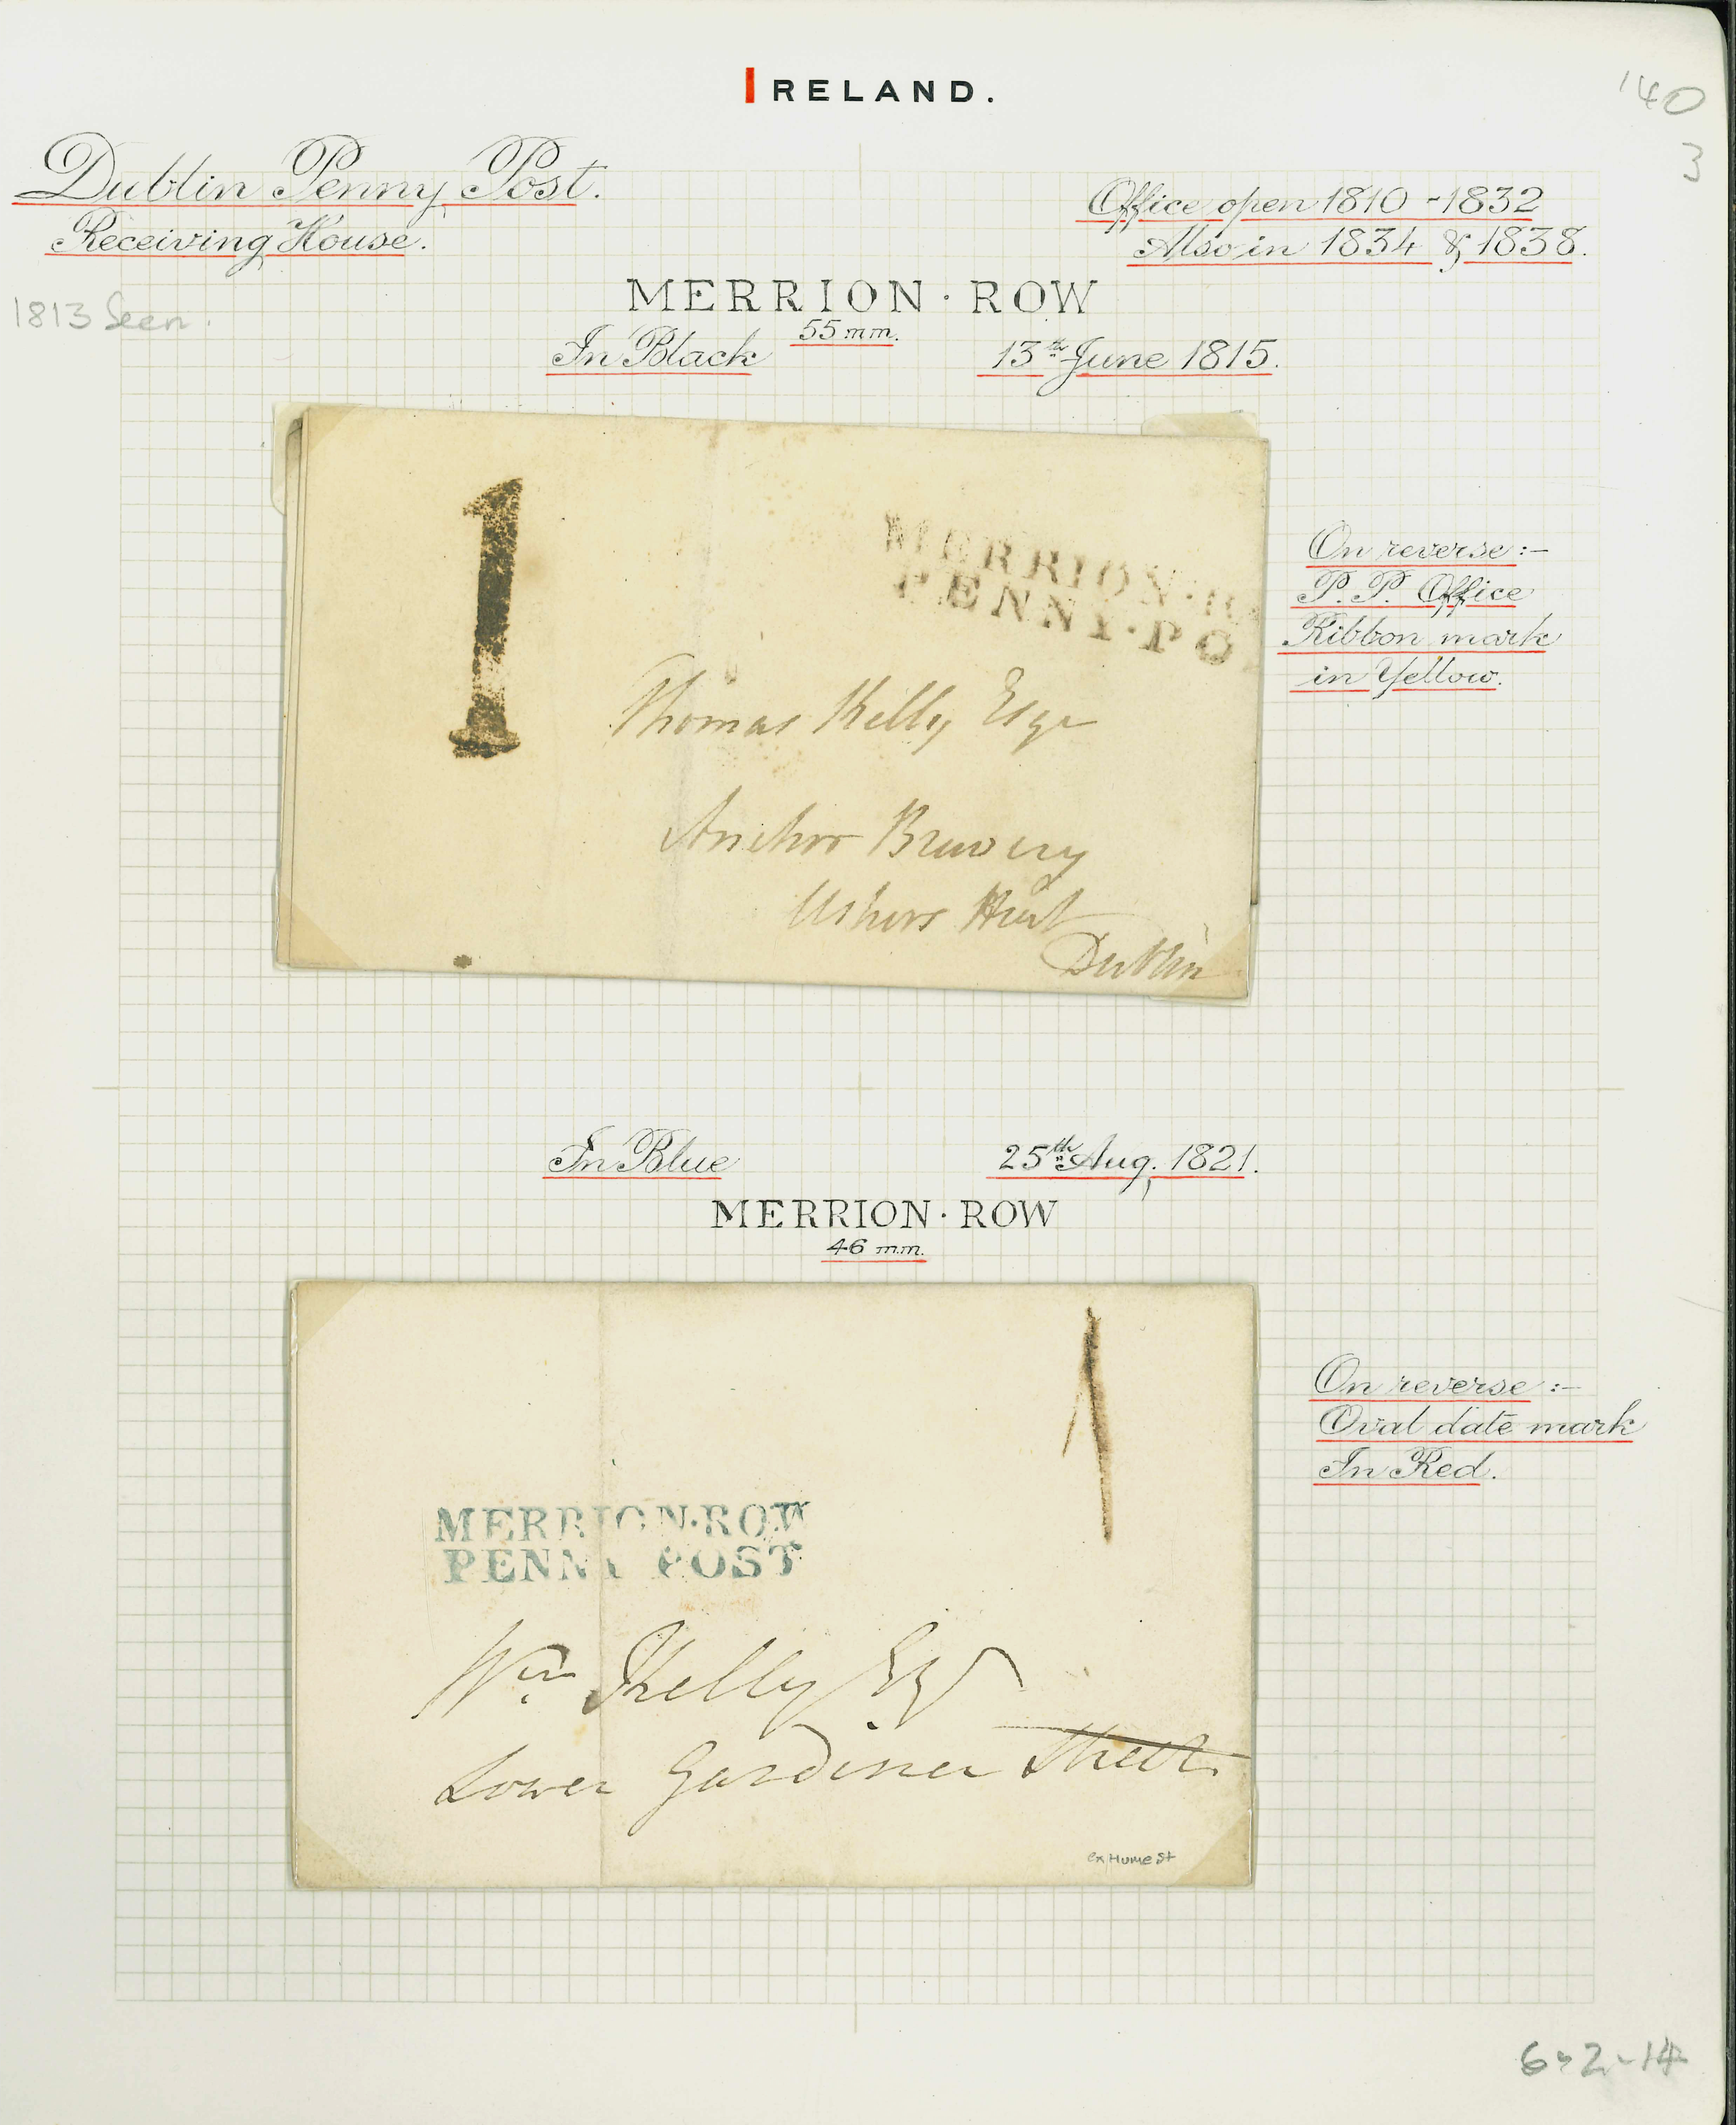 IRELAND.
'40
3
Dublin Penny Post.
Receiving House.
Office open 1810 - 1832
Also in 1834 & 1838.
1813 Seen.
MERRION · ROW
55 mm.
In Black
13th June 1815.
1
MERRION · R
PENNY · PO
Thomas Kelly Esqr
Anchor Brewery
Ushers
Dublin
On reverse :-
P. P. Office
Ribbon mark
in Yellow.
In Blue
25th Aug. 1821.
MERRION · ROW
46 m.m.
1
MERRION·ROW
PENNY POST
Wm Kelly Esq
Lower Gardiner Street
ex Hume St
On reverse :-
Oval date mark
In Red.
6-2-14